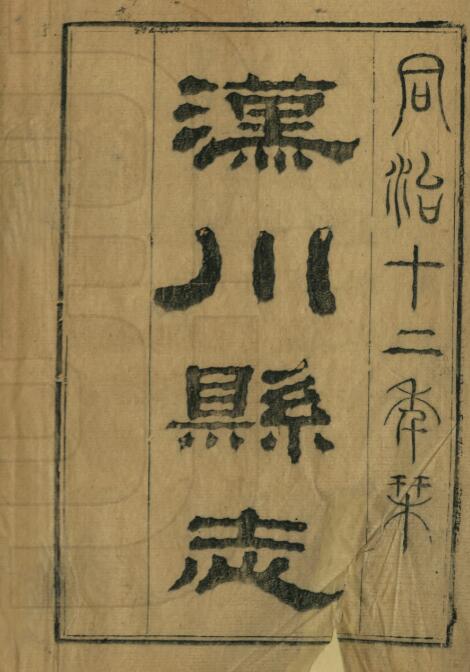 同治十二年栞
漢川縣志